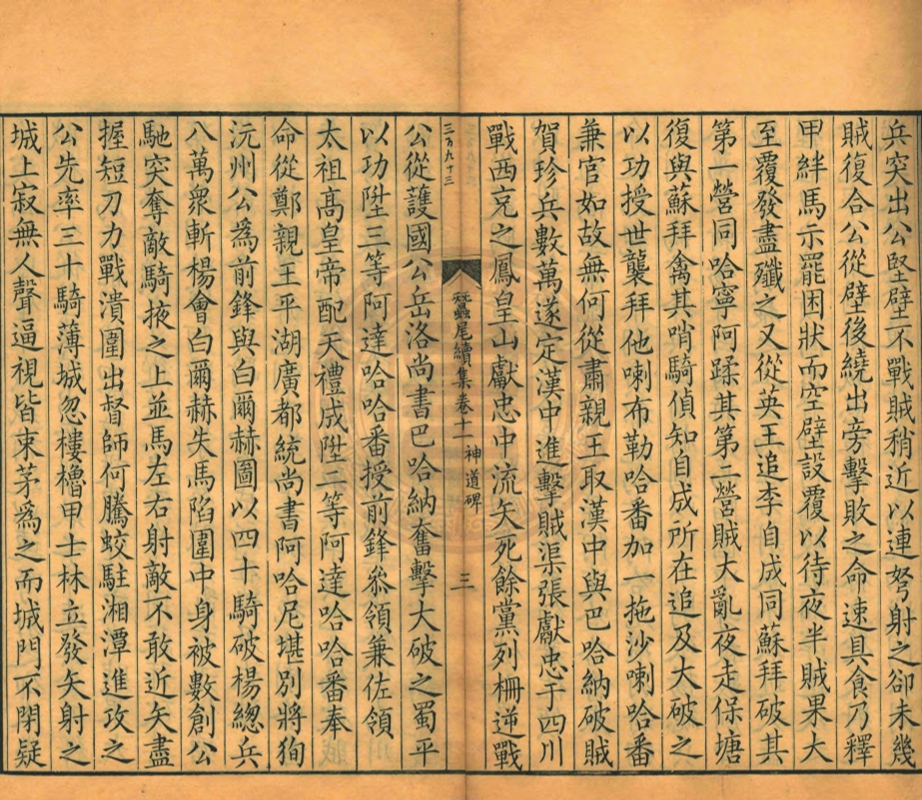 兵突出公堅壁不戰賊稍近以連弩射之卻未幾
賊復合公從壁後繞出旁擊敗之命速具食乃釋
甲絆馬示罷困狀而空壁設覆以待夜半賊果大
至覆發盡殲之又從英王追李自成同蘇拜破其
第一營同哈寧阿蹂其第二營賊大亂夜走保塘
復與蘇拜禽其哨騎偵知自成所在追及大破之
以功授世襲拜他喇布勒哈番加一拖沙喇哈番
兼官如故無何從肅親王取漢中與巴哈納破賊
賀珍兵數萬遂定漢中進擊賊渠張獻忠于四川
戰西充之鳳皇山獻忠中流矢死餘黨列柵逆戰
蠶尾續集卷十一 神道碑 三
三万九十三
公從護國公岳洛尚書巴哈納奮擊大破之蜀平
以功陞三等阿達哈哈番授前鋒叅領兼佐領
太祖高皇帝配天禮成陞二等阿達哈哈番奉
命從鄭親王平湖廣都統尚書阿哈尼堪別將狥
沅州公為前鋒與白爾赫圖以四十騎破楊總兵
八萬衆斬楊會白爾赫失馬陷圍中身被數創公
馳突奪敵騎掖之上並馬左右射敵不敢近矢盡
握短刀力戰潰圍出督師何騰蛟駐湘潭進攻之
公先率三十騎薄城忽樓櫓甲士林立發矢射之
城上寂無人聲逼視皆束茅爲之而城門不閉疑